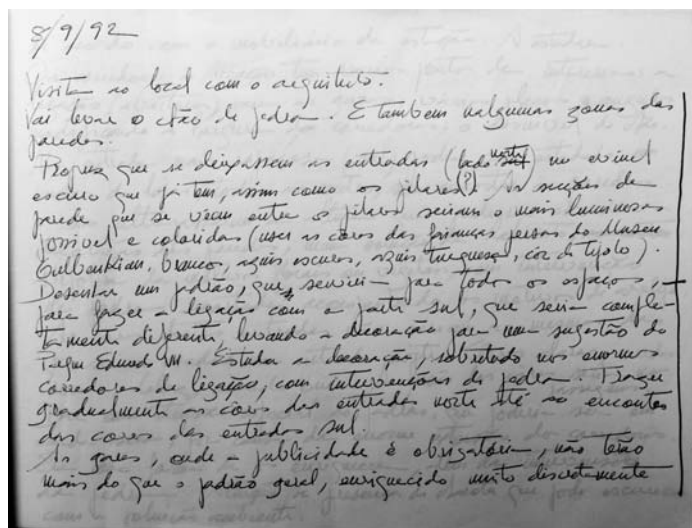 8/9/92
Visita ao local com o arquitecto.
Vai levar o chão de pedra. E também nalgumas zonas das
paredes.
Propus que se deixassem as entradas (lado norte) no
escuro que já tem, assim como os pilares(?). As secções de
parede que se vêem entre os pilares seriam o mais luminosas
possível e coloridas (usar as cores das faianças persas do Museu
Gulbenkian, brancos, azuis escuros, azuis turquesa, côr de tijolo).
Desenhar um padrão, que serviria para todos os espaços,
para fazer a ligação com a parte sul, que seria comple-
tamente diferente, levando a decoração para uma sugestão do
Parque Eduardo VII. Estudar a decoração, sobretudo nos enormes
corredores de ligação, com intervenções de pedra. Trazer
gradualmente as côres das entradas norte até ao encontro
das cores das entradas sul.
As gares, onde a publicidade é obrigatória, não terão
mais do que o padrão geral, enriquecido muito discretamente